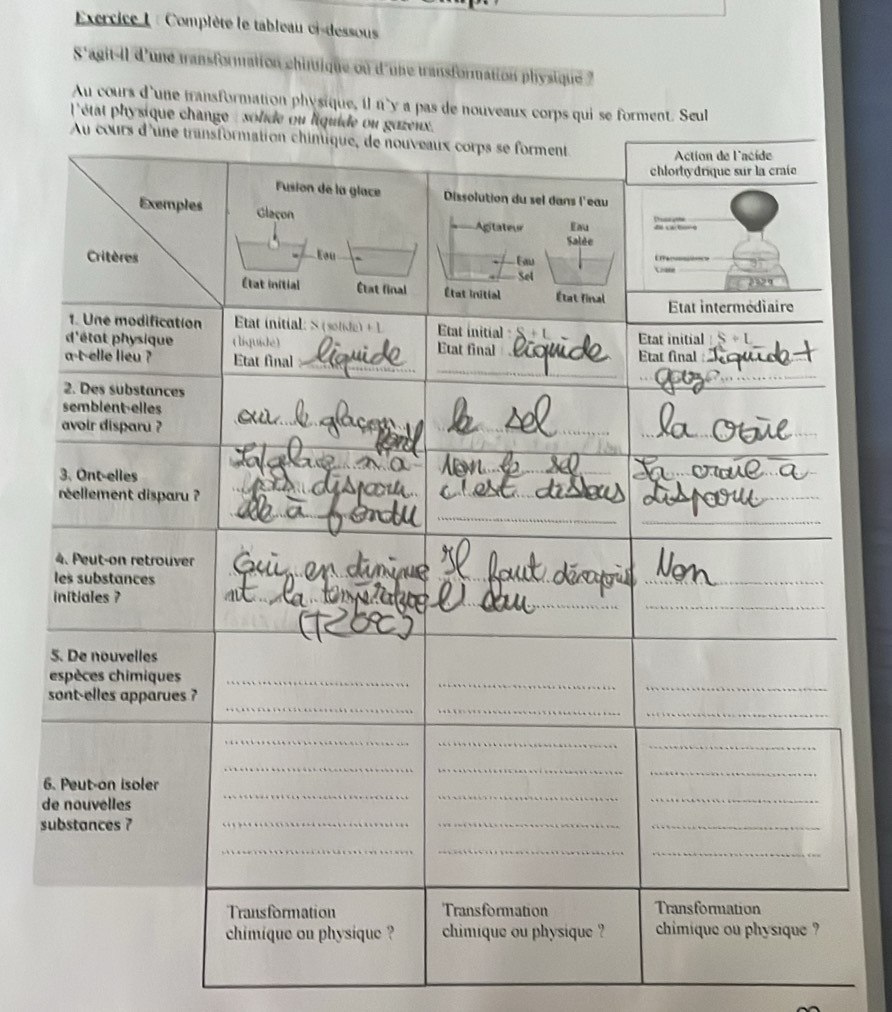 Exercice 1 : Complète le tableau ci-dessous
S'agit-il d'une transformation chimique ou d'une transformation physique ?
Au cours d'une transformation physique, il n'y a pas de nouveaux corps qui se forment. Seul
l'état physique change : solide ou liquide ou gazeux.
Au cours d'une transformation chimique, de nouveaux corps se forment
Exemples
Critères
Fusion de la glace
Glaçon
Eau
État initial
État final
Dissolution du sel dans l'eau
Agitateur
Eau
Salée
Eau
Sel
État initial
État final
Action de l'acide
chlorhydrique sur la craie
Effervescence
Craie
Etat intermédiaire
1. Une modification
d'état physique
a-t-elle lieu ?
Etat initial: S (solide) + L
(liquide)
Etat final liquide
Etat initial : S + L
Etat final liquide
Etat initial : S + L
Etat final : liquide +
gaz
2. Des substances
semblent-elles
avoir disparu ?
oui le glaçon
fond
le sel
la craie
3. Ont-elles
réellement disparu ?
La glace n a
pas disparu
elle à fondu
Non le sel
c'est dissous
La craie a
disparu
4. Peut-on retrouver
les substances
initiales ?
Oui, en diminue
nt la température
(T<0°C)
Il faut
l'eau
Non
5. De nouvelles
espèces chimiques
sont-elles apparues ?
6. Peut-on isoler
de nouvelles
substances ?
Transformation
chimique ou physique ?
Transformation
chimique ou physique ?
Transformation
chimique ou physique ?